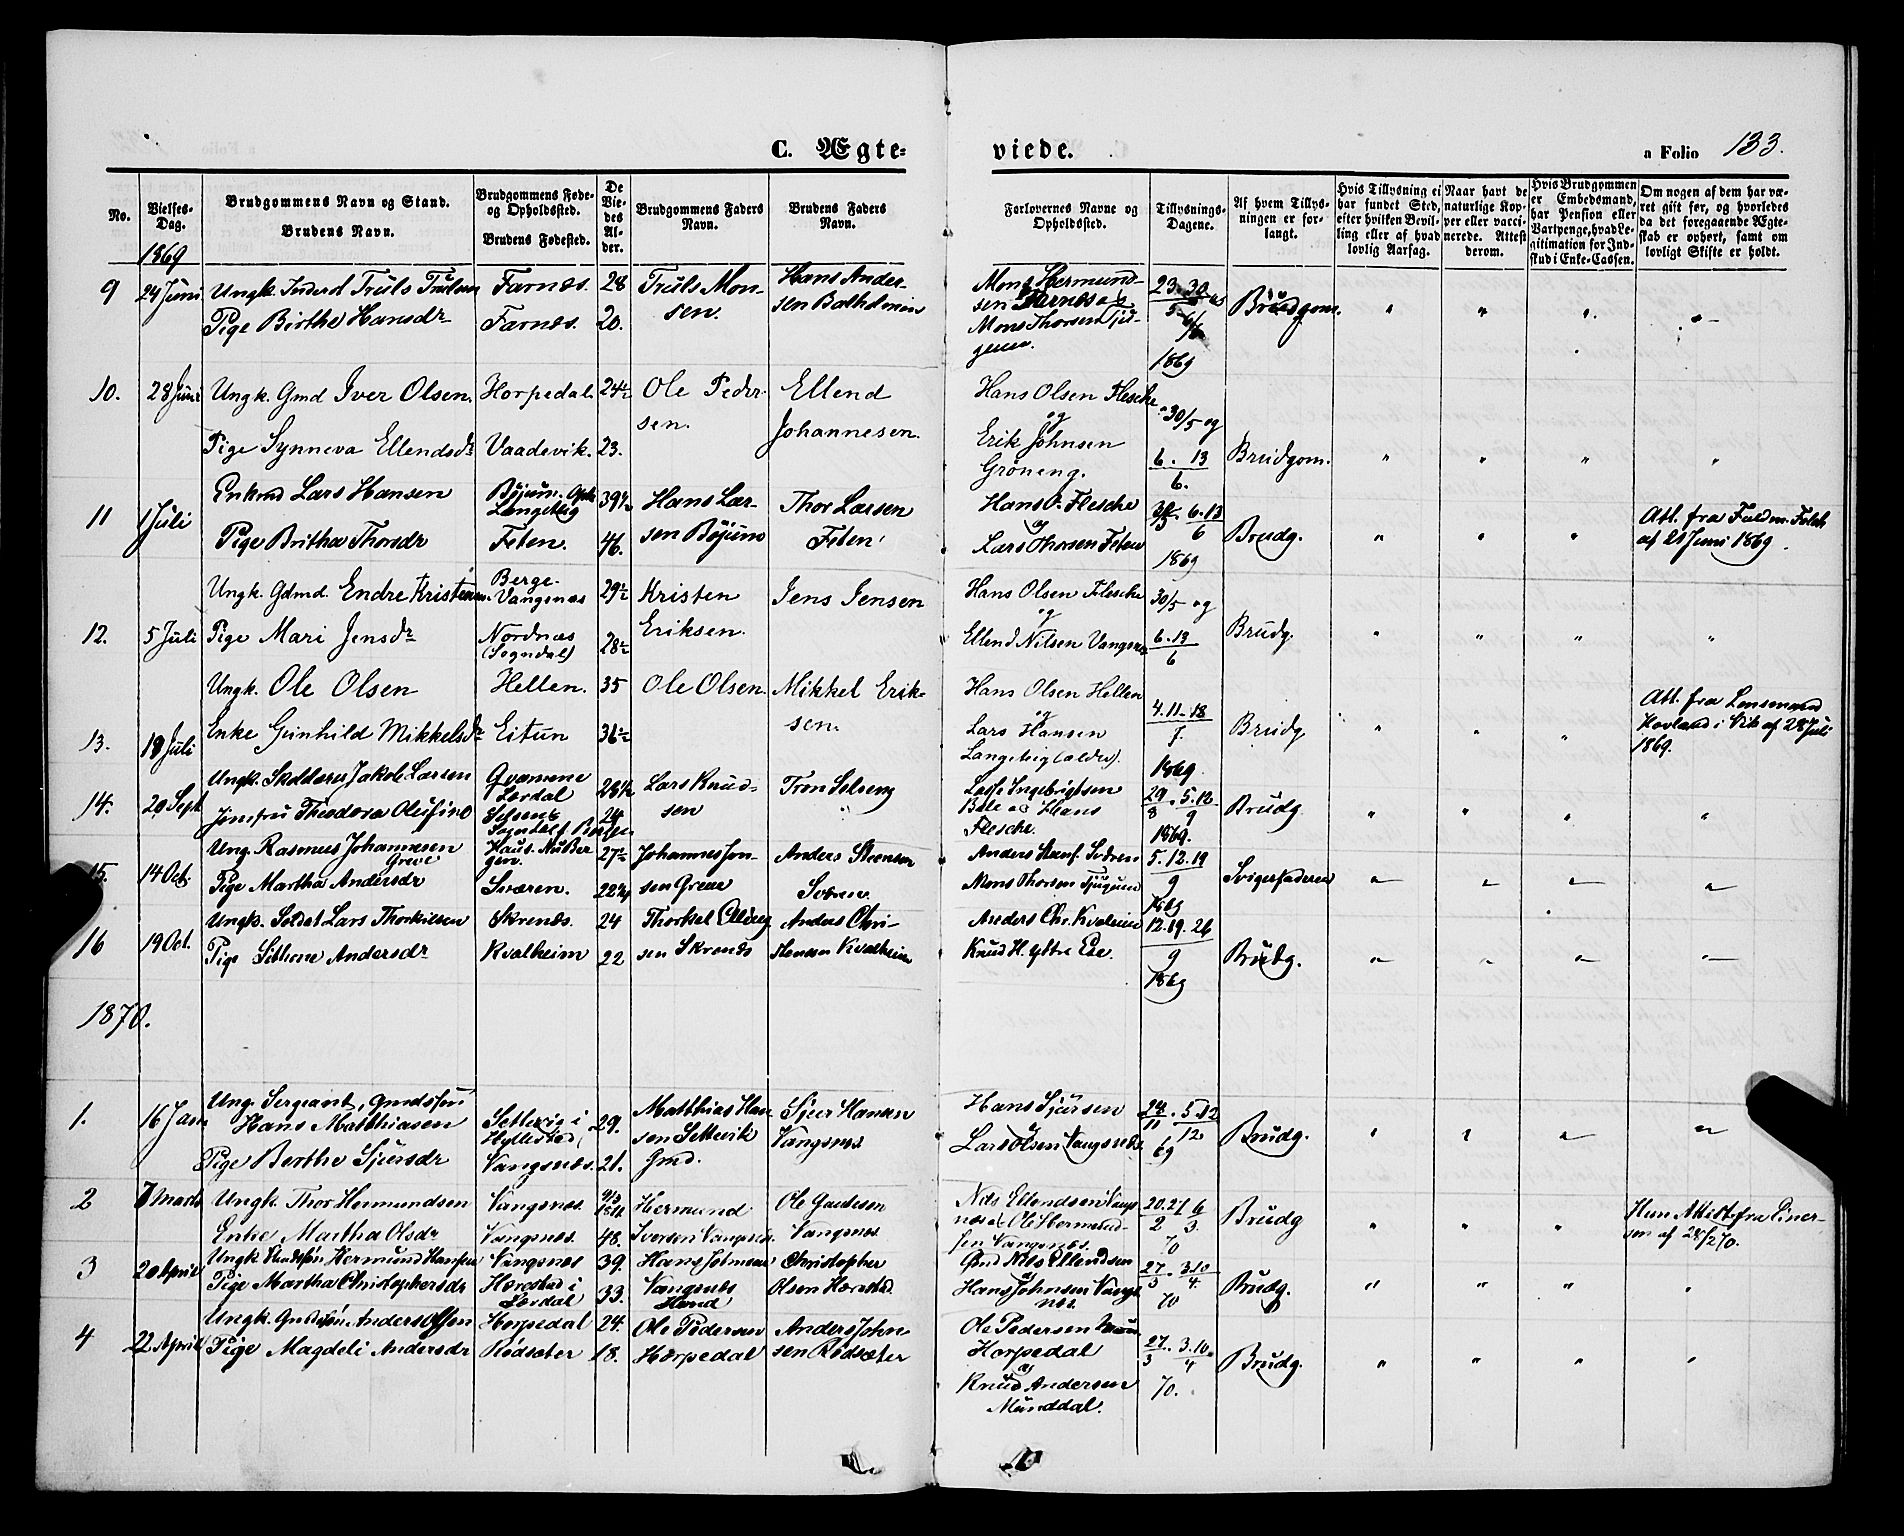 C. Ægte- viede.
a Folio 133.
No.
Vielses-Dag.
Brudgommens Navn og Stand.
Brudens Navn.
Brudgommens Føde- og Opholdssted.
Brudens Fødested.
De Viedes Alder.
Brudgommens Faders Navn.
Brudens Faders Navn.
Forlovernes Navne og Opholdssted.
Tillysnings-Dagene.
Af hvem Tillysningen er forlangt.
Hvis Tillysning ei har fundet Sted, efter hvilken Bevilling eller af hvad lovlig Aarsag.
Naar havt de naturlige Kopper eller vaccinerede. Attest derom.
Hvis Brudgommen er Embedsmand, har Pension eller Vartpenge, hvad Legitimation for Indskud i Enke-Cassen.
Om nogen af dem har været gift før, og hvorledes da det foregaaende Ægteskab er ophørt, samt om lovligt Skifte er holdt.
1869
9 24 Juni Ungk. Inderst Truls Trulsen Farnæs. 28 Truls Mon- Hans Ander- Mons Hermund-
Pige Birthe Hansdr Farnæs. 20. sen. sen Brudgom.
Mons Thorsen
1869
10. 28 Juni Ungk. Gmd Iver Olsen. Horpedal. 24½ Ole Peder- Ellend Hans Olsen Flesche 30/5 og
sen. Johannesen. og
Pige Synneva Ellendsdr Vaadevik. 23. Erik Johnsen 6. 13 Brudgom.
Grøneng. 6.
11 1 Juli Enkmd Lars Hansen Bøjum. Oph. Langeteig 39½ Hans Lar- Thor Larsen Hans O. Flesche 30/5 6.13/6
Pige Britha Thorsdr Feten. 46. sen Bøjum Feten og Lars Thorsen Feten 1869 Brudg. Att. fra
af 21 Juni 1869.
Ungk. Gdmd. Endre Kristensen. Berge- Vangsnæs 29½ Kristen Jens Jensen Hans Olsen Flesche 30/5 og
og
12. 5 Juli Pige Mari Jensdr Nordnæs (Sogndal) 28½ Eriksen. Ellend Nilsen Vangsnæs 6.13/6 Brudg.
Ungk. Ole Olsen Hellen. 35 Ole Olsen. Mikkel Erik- Hans Olsen Hellen
og
13. 18 Juli Enke Gunhild Mikkelsdr Eitun 36½ sen. Lars Hansen 4.11.18/7. Brudg Att. fra Lensmand
Hovland i Vik af 28 Juli
1869.
1869
14. 20 Sept Ungk. Jakob Larsen Qvamme Lærdal 28½ Lars Knud- Tron Selseng Lasse Ingebrigtsen 29/8. 5.12/9
Jomfru Theodora 24 sen Bale og Hans Flesche. 1869. Brudg.
15. 14 Oct. Ung. Rasmus Johannesen Greve 27½ Johannes Jon- Anders Steensen Anders 5.12.19/9
Pige Martha Andersdr Sværen. 22¾ sen Greve Mons Thorsen 1869 Svigerfaderen
16 19 Oct. Ungk. Soldat Lars Thorkilsen Skrenæs. 24 Thorkel Anders Chri- Anders Chr. Kvalheim 12.19.26/9
Pige Andersdr Kvalheim 22 sen Kvalheim Knud H. Ese. 1869 Brudg.
1870.
1. 16 Jan. Ung. Sergeant, Gmdssøn Hans Matthiasen i Hyllestad 29. Matthias Han- Sjur Hansen Hans Sjursen 28/11. 5.12/12
Pige Berthe Sjursdr Vangsnæs. 21. sen Gmd. Vangsnæs og Lars Olsen Vangsnæs 69 Brudg.
2 7 Marts Ungk. Thor Hermundsen Vangsnæs. Hermund Ole Nils Ellendsen Vangs- 20.27/2 6/3. Brudg
Enke Martha Olsdr Vangsnæs. 48. Iversen Vangsnæs. Vangsnæs næs og Ole Hermund- sen Vangsnæs. 70 Hun Attest fra
sen af 28/2 70.
3 20 April Ungk. Hermund Hansen Vangsnæs 39. Hans Johnsen Christopher Gmd Nils Ellendsen
Pige Martha Christophersdr i Lærdal 33. Vangsnæs Olsen og Hans Johnsen Vangs- næs. 27/3 3.10/4. 70 Brudg.
4 22 April Ungk. Anders Olsen Horpedal 24. Ole Pedersen Anders John- Ole Pedersen
Pige Magdeli Andersdr Rødsæter 18. Horpedal sen Rødsæter Horpedal 27/3 3.10/4 Brudg.
og
Knud Andersen 70.
Munddal.